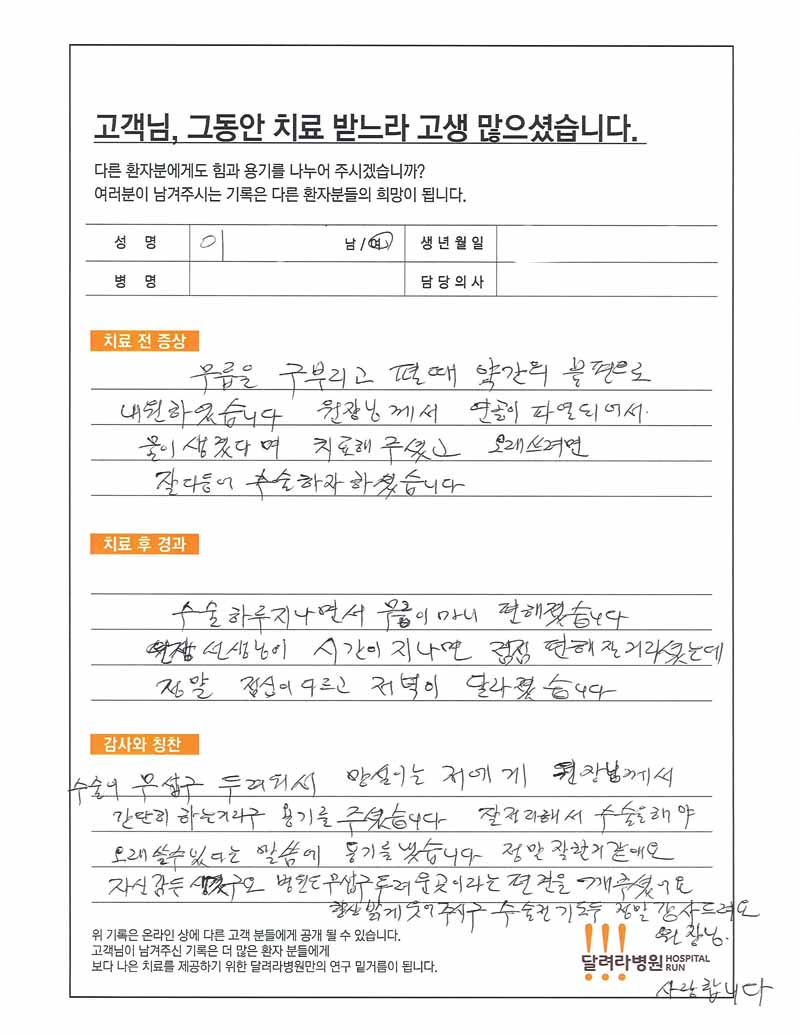 고객님, 그동안 치료 받느라 고생 많으셨습니다.
다른 환자분에게도 힘과 용기를 나누어 주시겠습니까?
여러분이 남겨주시는 기록은 다른 환자분들의 희망이 됩니다.
성 명 이 남/여 생년월일
병 명 담당의사
치료 전 증상
무릎을 구부리고 펼때 약간의 불편으로
내원하였습니다 원장님께서 연골이 파열되어서
물이 생겼다며 치료해 주셨고 오래쓰려면
잘다듬어 수술하자 하셨습니다
치료 후 경과
수술하루지나면서 무릎이 마니 편해졌습니다
선생님이 시간이 지나면 점점 편해질거라셨는데
정말 점심이 다르고 저녁이 달라졌습니다
감사와 칭찬
수술이 무섭구 두려워서 망설이는 저에게 원장님께서
간단히 하는거라구 용기를 주셨습니다 잘정리해서 수술을해야
오래쓸수있다는 말씀에 용기를 냈습니다 정말 잘한거같에요
자신감두 생겼구요 병원도무섭구두려운곳이라는 편견을 깨주셨어요
항상 밝게 웃어주시구 수술전 기도두 정말 감사드려요
원장님.
사랑합니다
위 기록은 온라인 상에 다른 고객 분들에게 공개 될 수 있습니다.
고객님이 남겨주신 기록은 더 많은 환자 분들에게
보다 나은 치료를 제공하기 위한 달려라병원만의 연구 밑거름이 됩니다.
달려라병원 HOSPITAL RUN